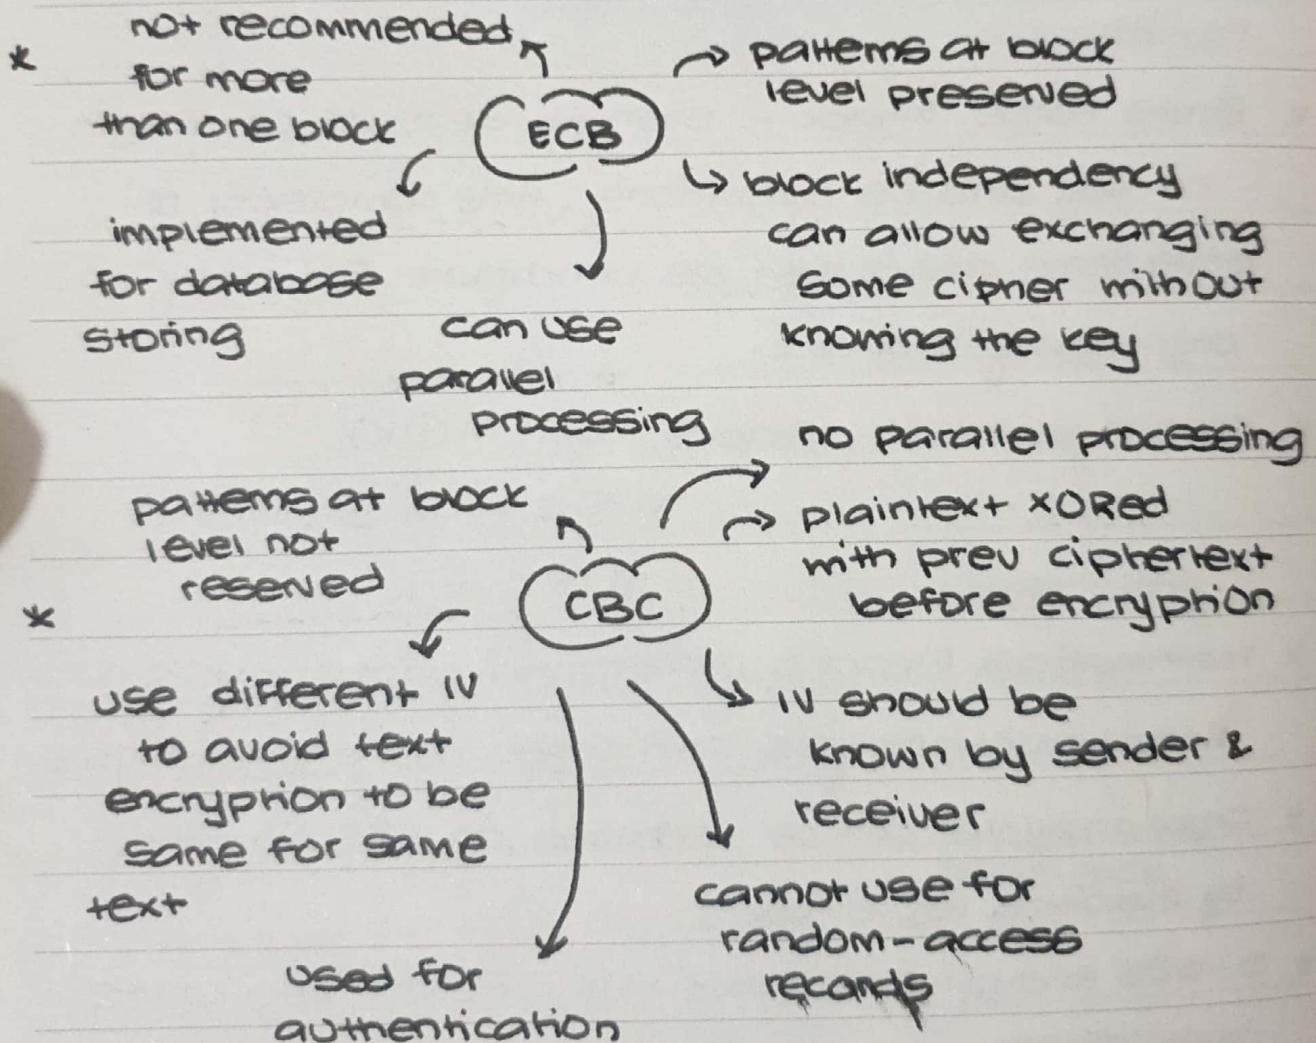 *
not recommended
for more
than one block
ECB
patterns at block
level preserved
block independency
can allow exchanging
some cipher without
knowing the key
implemented
for database
storing
can use
parallel
processing
no parallel processing
patterns at block
level not
reserved
*
CBC
plaintext XORed
with prev ciphertext
before encryption
use different IV
to avoid text
encryption to be
same for same
text
IV should be
known by sender &
receiver
cannot use for
random-access
records
used for
authentication